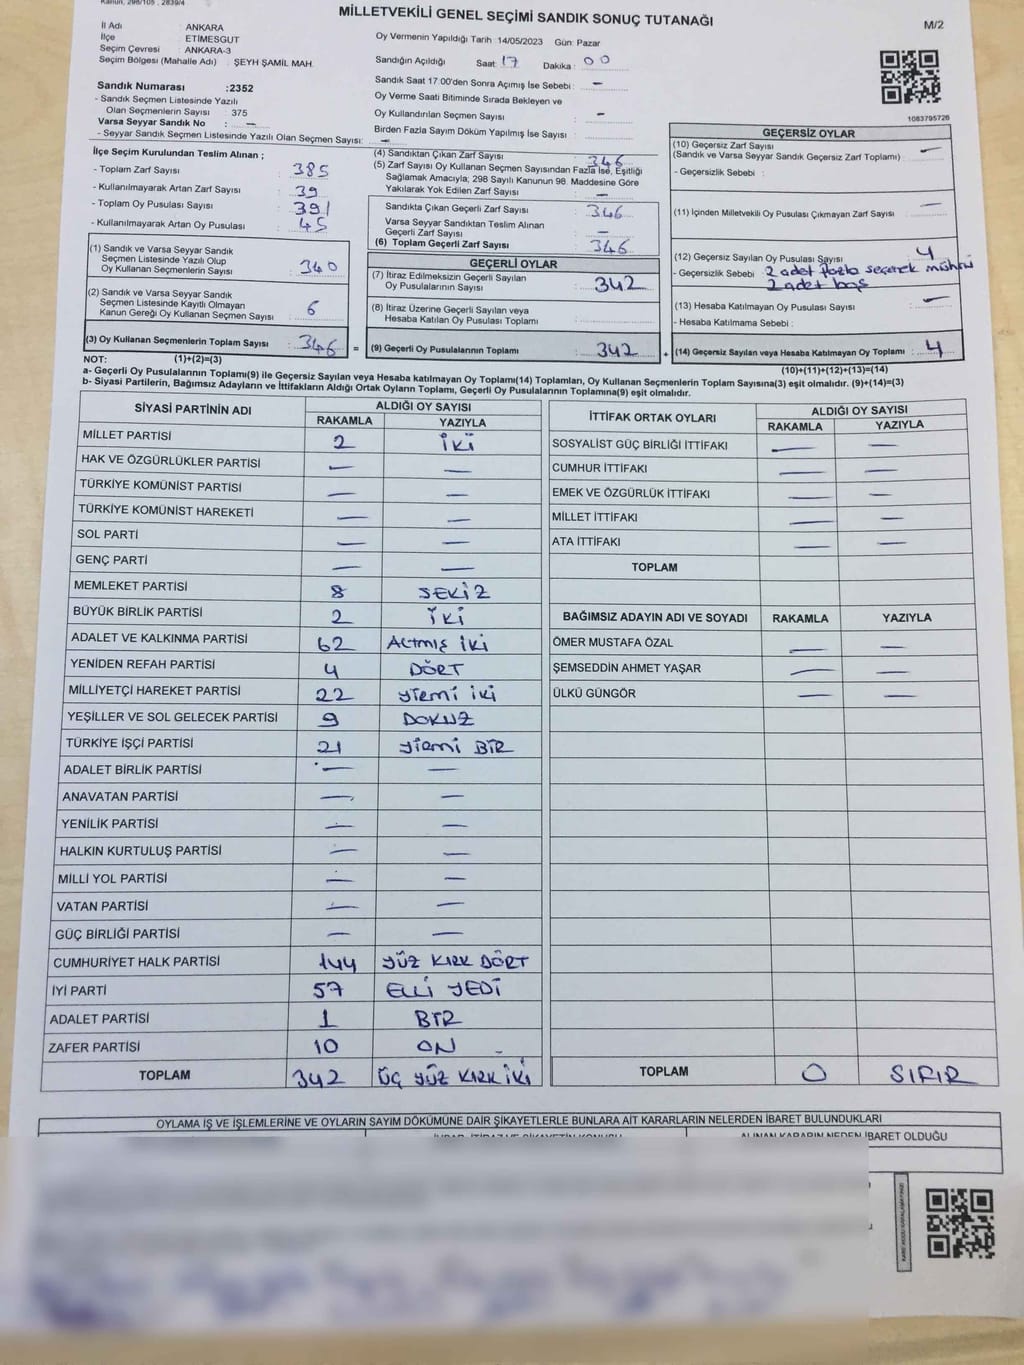 Kanun, 298/105 , 2839/4
MİLLETVEKİLİ GENEL SEÇİMİ SANDIK SONUÇ TUTANAĞI
M/2
İl Adı ANKARA
İlçe ETİMESGUT
Seçim Çevresi : ANKARA-3
Seçim Bölgesi (Mahalle Adı) : ŞEYH ŞAMİL MAH.
Sandık Numarası :2352
- Sandık Seçmen Listesinde Yazılı
Olan Seçmenlerin Sayısı : 375
Varsa Seyyar Sandık No : –
- Seyyar Sandık Seçmen Listesinde Yazılı Olan Seçmen Sayısı: –
Oy Vermenin Yapıldığı Tarih :14/05/2023 Gün: Pazar
Sandığın Açıldığı Saat: 17 Dakika : 00
Sandık Saat 17.00'den Sonra Açımış İse Sebebi : –
Oy Verme Saati Bitiminde Sırada Bekleyen ve
Oy Kullandırılan Seçmen Sayısı : –
Birden Fazla Sayım Döküm Yapılmış İse Sayısı :
1083795726
İlçe Seçim Kurulundan Teslim Alınan ;
- Toplam Zarf Sayısı : 385
- Kullanılmayarak Artan Zarf Sayısı : 39
- Toplam Oy Pusulası Sayısı : 391
- Kullanılmayarak Artan Oy Pusulası : 45
(1) Sandık ve Varsa Seyyar Sandık
Seçmen Listesinde Yazılı Olup
Oy Kullanan Seçmenlerin Sayısı : 340
(2) Sandık ve Varsa Seyyar Sandık
Seçmen Listesinde Kayıtlı Olmayan
Kanun Gereği Oy Kullanan Seçmen Sayısı : 6
(3) Oy Kullanan Seçmenlerin Toplam Sayısı : 346 =
(4) Sandıktan Çıkan Zarf Sayısı : 346
(5) Zarf Sayısı Oy Kullanan Seçmen Sayısından Fazla İse, Eşitliği
Sağlamak Amacıyla; 298 Sayılı Kanunun 98. Maddesine Göre
Yakılarak Yok Edilen Zarf Sayısı : –
Sandıkta Çıkan Geçerli Zarf Sayısı : 346
Varsa Seyyar Sandıktan Teslim Alınan
Geçerli Zarf Sayısı : –
(6) Toplam Geçerli Zarf Sayısı : 346
GEÇERLİ OYLAR
(7) İtiraz Edilmeksizin Geçerli Sayılan
Oy Pusulalarının Sayısı : 342
(8) İtiraz Üzerine Geçerli Sayılan veya
Hesaba Katılan Oy Pusulası Toplamı :
(9) Geçerli Oy Pusulalarının Toplamı : 342 +
GEÇERSİZ OYLAR
(10) Geçersiz Zarf Sayısı
(Sandık ve Varsa Seyyar Sandık Geçersiz Zarf Toplamı) : –
- Geçersizlik Sebebi :
(11) İçinden Milletvekili Oy Pusulası Çıkmayan Zarf Sayısı : –
(12) Geçersiz Sayılan Oy Pusulası Sayısı : 4
- Geçersizlik Sebebi : 2 adet fazla seçerek mühürü
2 adet boş
(13) Hesaba Katılmayan Oy Pusulası Sayısı : –
- Hesaba Katılmama Sebebi :
(14) Geçersiz Sayılan veya Hesaba Katılmayan Oy Toplamı : 4
NOT: (1)+(2)=(3)
(10)+(11)+(12)+(13)=(14)
a- Geçerli Oy Pusulasının Toplamı(9) ile Geçersiz Sayılan veya Hesaba katılmayan Oy Toplamı(14) Toplamları, Oy Kullanan Seçmenlerin Toplam Sayısına(3) eşit olmalıdır. (9)+(14)=(3)
b- Siyasi Partilerin, Bağımsız Adayların ve İttifakların Aldığı Ortak Oyların Toplamı, Geçerli Oy Pusulalarının Toplamına(9) eşit olmalıdır.
SİYASİ PARTİNİN ADI ALDIĞI OY SAYISI
RAKAMLA YAZIYLA
MİLLET PARTİSİ 2 İKİ
HAK VE ÖZGÜRLÜKLER PARTİSİ – –
TÜRKİYE KOMÜNİST PARTİSİ – –
TÜRKİYE KOMÜNİST HAREKETİ – –
SOL PARTİ – –
GENÇ PARTİ – –
MEMLEKET PARTİSİ 8 SEKİZ
BÜYÜK BİRLİK PARTİSİ 2 İKİ
ADALET VE KALKINMA PARTİSİ 62 ALTMIŞ İKİ
YENİDEN REFAH PARTİSİ 4 DÖRT
MİLLİYETÇİ HAREKET PARTİSİ 22 yirmi iki
YEŞİLLER VE SOL GELECEK PARTİSİ 9 DOKUZ
TÜRKİYE İŞÇİ PARTİSİ 21 yirmi BİR
ADALET BİRLİK PARTİSİ – –
ANAVATAN PARTİSİ – –
YENİLİK PARTİSİ – –
HALKIN KURTULUŞ PARTİSİ – –
MİLLİ YOL PARTİSİ – –
VATAN PARTİSİ – –
GÜÇ BİRLİĞİ PARTİSİ – –
CUMHURİYET HALK PARTİSİ 144 YÜZ KIRK DÖRT
İYİ PARTİ 57 ELLİ YEDİ
ADALET PARTİSİ 1 BİR
ZAFER PARTİSİ 10 ON
TOPLAM 342 ÜÇ YÜZ KIRK İKİ
İTTİFAK ORTAK OYLARI ALDIĞI OY SAYISI
RAKAMLA YAZIYLA
SOSYALİST GÜÇ BİRLİĞİ İTTİFAKI – –
CUMHUR İTTİFAKI – –
EMEK VE ÖZGÜRLÜK İTTİFAKI – –
MİLLET İTTİFAKI – –
ATA İTTİFAKI – –
TOPLAM
BAĞIMSIZ ADAYIN ADI VE SOYADI RAKAMLA YAZIYLA
ÖMER MUSTAFA ÖZAL – –
ŞEMSEDDİN AHMET YAŞAR – –
ÜLKÜ GÜNGÖR – –
TOPLAM 0 SIFIR
OYLAMA İŞ VE İŞLEMLERİNE VE OYLARIN SAYIM DÖKÜMÜNE DAİR ŞİKAYETLERLE BUNLARA AİT KARARLARIN NELERDEN İBARET BULUNDUKLARI
ALINAN KARARIN NEDEN İBARET OLDUĞU